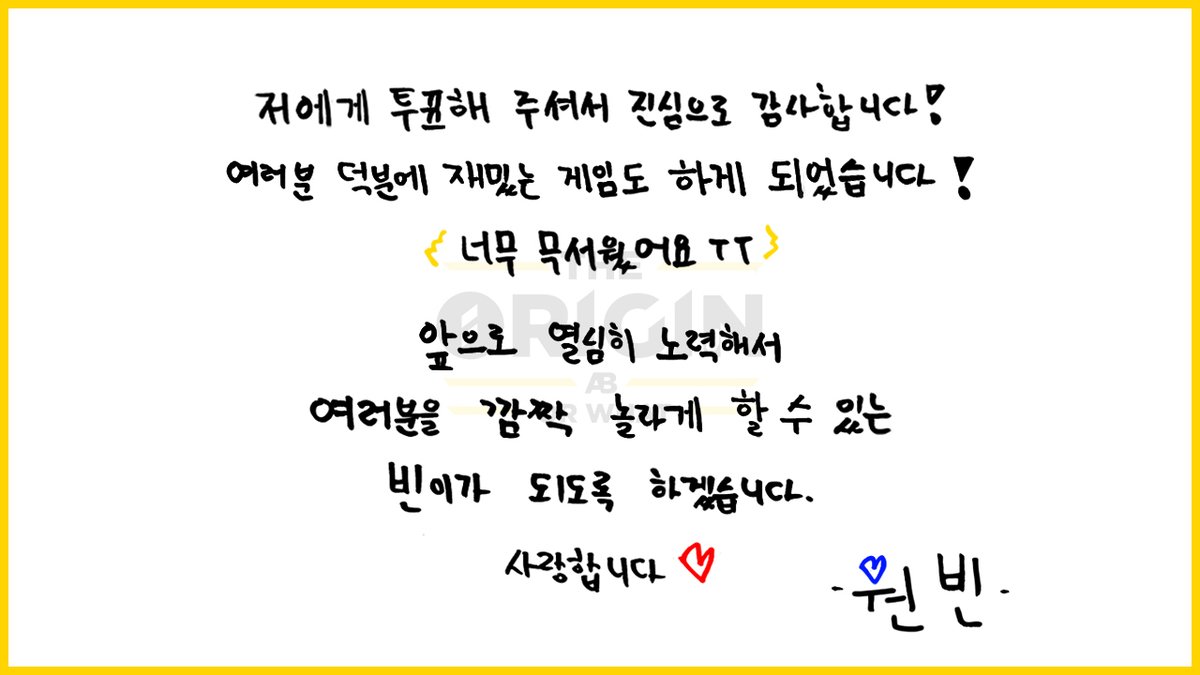 저에게 투표해 주셔서 진심으로 감사합니다!
여러분 덕분에 재밌는 게임도 하게 되었습니다!
너무 무서웠어요 ㅜㅜ
THE
ORIGIN
앞으로 열심히 노력해서
AB
여러분을 깜짝 놀라게 할 수 있는
빈이가 되도록 하겠습니다.
사랑합니다
-원빈-